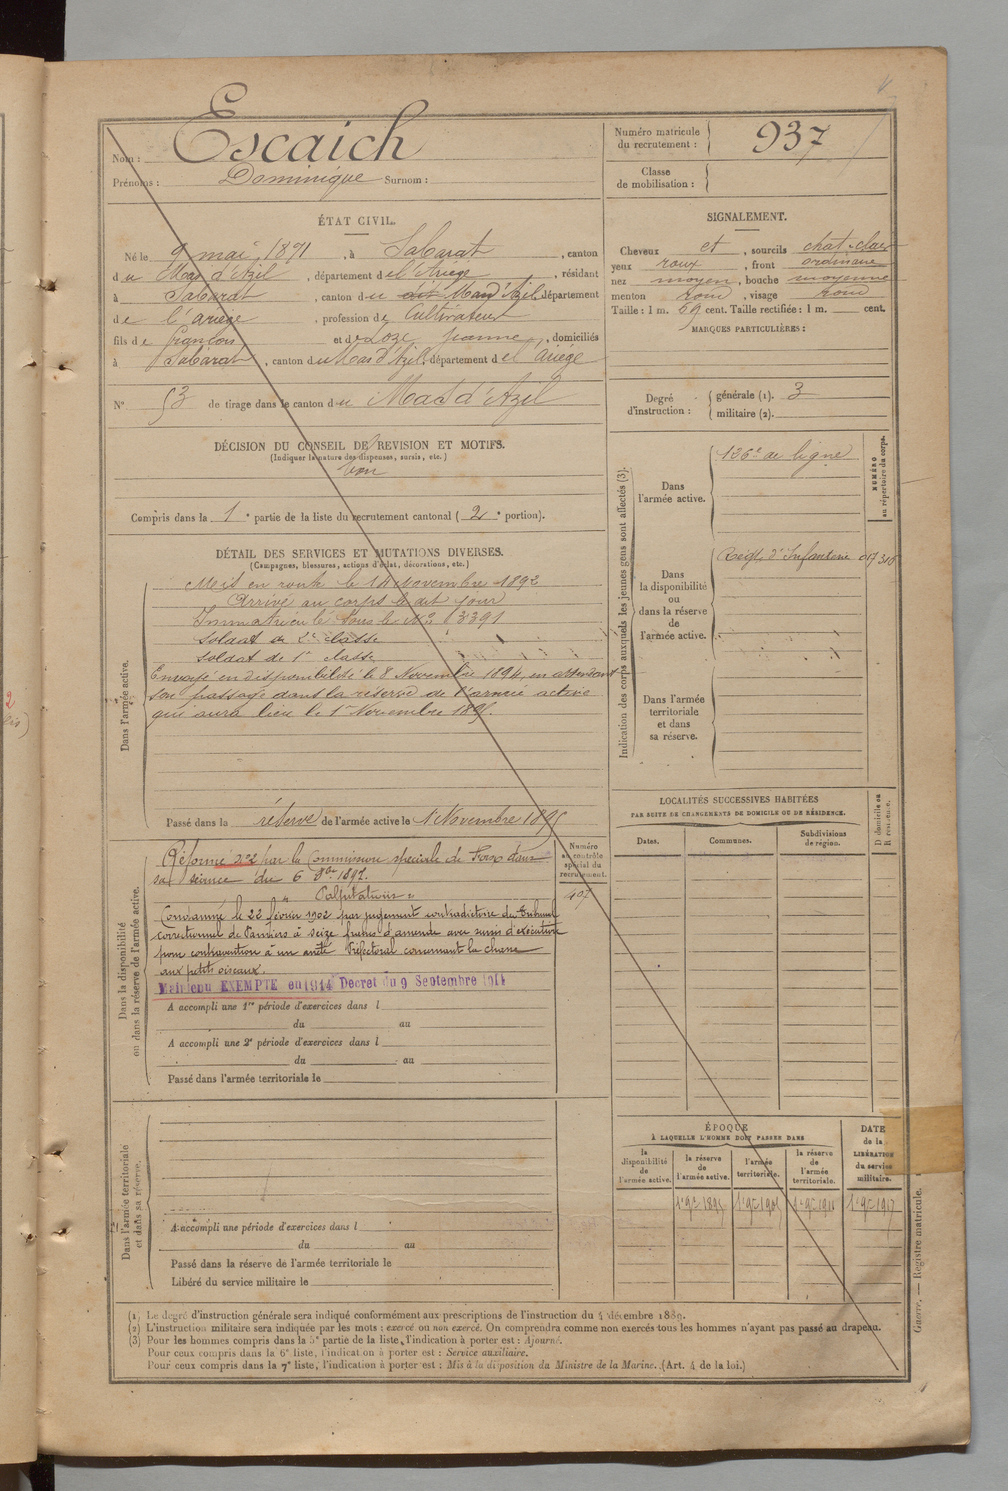 Nom : Escaich
Prénoms : Dominique Surnom :
Numéro matricule du recrutement : 937
Classe de mobilisation :
ÉTAT CIVIL.
Né le 9 mai 1871, à Sabarat, canton
du Mas d'Azil, département de l'Ariège, résidant
à Sabarat, canton du dit Mas d'Azil, département
de l'Ariège, profession de Cultivateur
fils de François et de Loze Jeanne, domiciliés
à Sabarat, canton du Mas d'Azil, département de l'Ariège
N° 53 de tirage dans le canton du Mas d'Azil
SIGNALEMENT.
Cheveux et, sourcils chat-clair
yeux roux, front ordinaire
nez moyen, bouche moyenne
menton rond, visage rond
Taille : 1 m. 69 cent. Taille rectifiée : 1 m. cent.
MARQUES PARTICULIÈRES :
Degré d'instruction : générale (1). 3
militaire (2).
DÉCISION DU CONSEIL DE REVISION ET MOTIFS.
(Indiquer la nature des dispenses, sursis, etc.)
Bon
Compris dans la 1e partie de la liste du recrutement cantonal (2e portion).
DÉTAIL DES SERVICES ET MUTATIONS DIVERSES.
(Campagnes, blessures, actions d'éclat, décorations, etc.)
Dans l'armée active.
Mis en route le 14 Novembre 1892
Arrivé au corps le dit jour
Immatriculé sous le N°
Soldat de 2e classe
Soldat de 1e classe
Envoyé en disponibilité le 8 Novembre 1894, en attendant
son passage dans la réserve de l'armée active
qui aura lieu le 1er Novembre 1895.
Passé dans la réserve de l'armée active le 1 Novembre 1895
Indication des corps auxquels les jeunes gens sont affectés (3).
NUMÉRO au répertoire du corps.
Dans l'armée active.
126e de ligne
Dans la disponibilité ou dans la réserve de l'armée active.
Régt d'Infanterie
Dans l'armée territoriale et dans sa réserve.
LOCALITÉS SUCCESSIVES HABITÉES
PAR SUITE DE CHANGEMENTS DE DOMICILE OU DE RÉSIDENCE.
Dates. Communes. Subdivisions de région. D domicile ou R résidence.
Dans la disponibilité ou dans la réserve de l'armée active.
Numéro au contrôle spécial du recrutement.
407
Réformé n°2 par la Commission spéciale de Foix dans
sa séance du 6 8bre 1897.
"Palpitations"
Condamné le 22 février 1902 par jugement contradictoire du Tribunal
correctionnel de Pamiers à seize francs d'amende avec sursis d'exécution
pour contravention à un arrêté Préfectoral concernant la chasse
aux petits oiseaux.
Maintenu EXEMPTE en 1914 Decret du 9 Septembre 1914
A accompli une 1re période d'exercices dans l
du au
A accompli une 2e période d'exercices dans l
du au
Passé dans l'armée territoriale le
Dans l'armée territoriale et dans sa réserve.
A accompli une période d'exercices dans l
du au
Passé dans la réserve de l'armée territoriale le
Libéré du service militaire le
ÉPOQUE
À LAQUELLE L'HOMME DOIT PASSER DANS
la disponibilité de l'armée active.
la réserve de l'armée active.
l'armée territoriale.
la réserve de l'armée territoriale.
DATE de la LIBÉRATION du service militaire.
1er 9bre 1895 1er 9bre 1905 1er 9bre 1911 1er 9bre 1917
Guerre. — Registre matricule.
(1) Le degré d'instruction générale sera indiqué conformément aux prescriptions de l'instruction du 4 décembre 1889.
(2) L'instruction militaire sera indiquée par les mots : exercé ou non exercé. On comprendra comme non exercés tous les hommes n'ayant pas passé au drapeau.
(3) Pour les hommes compris dans la 5e partie de la liste, l'indication à porter est : Ajourné.
Pour ceux compris dans la 6e liste, l'indication à porter est : Service auxiliaire.
Pour ceux compris dans la 7e liste, l'indication à porter est : Mis à la disposition du Ministre de la Marine. (Art. 4 de la loi.)